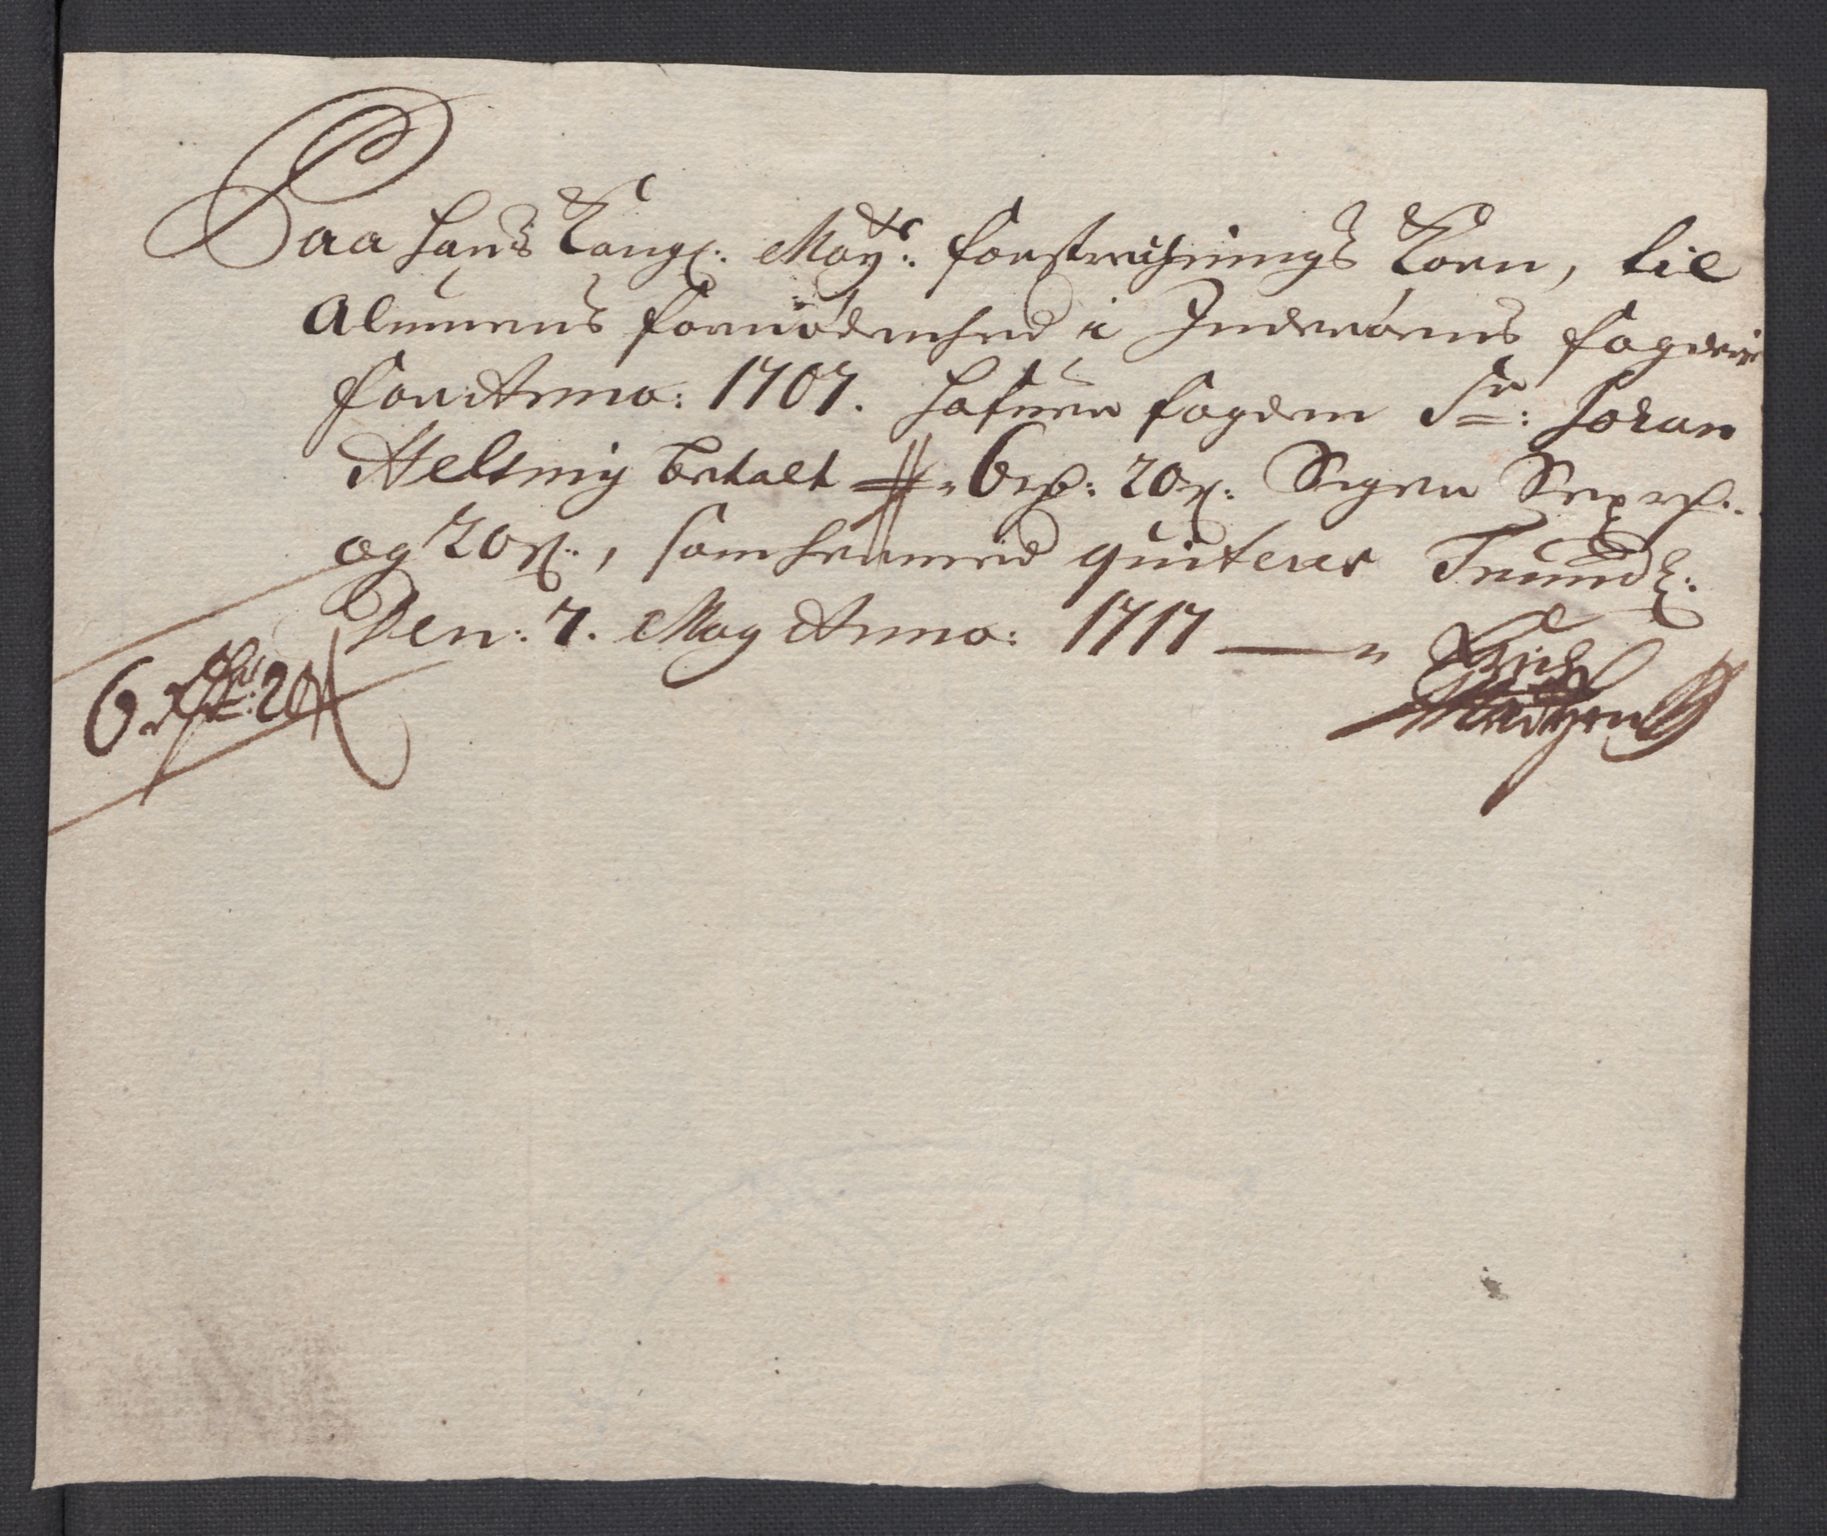 Paa Hans Kongl: Mayts: forstrechnings Korn, til
Almuens fornødenhed i Inderøens fogderie
for Anno: 1707. hafuer fogden Sr: Johan
Heltzing betalt # 6 rd: 20 s: Siger Sex rd:
og 20 s:, som hermed quiteres Trundh:
Den: 7. May Anno: 1717 —
6 Rdr: 20 s